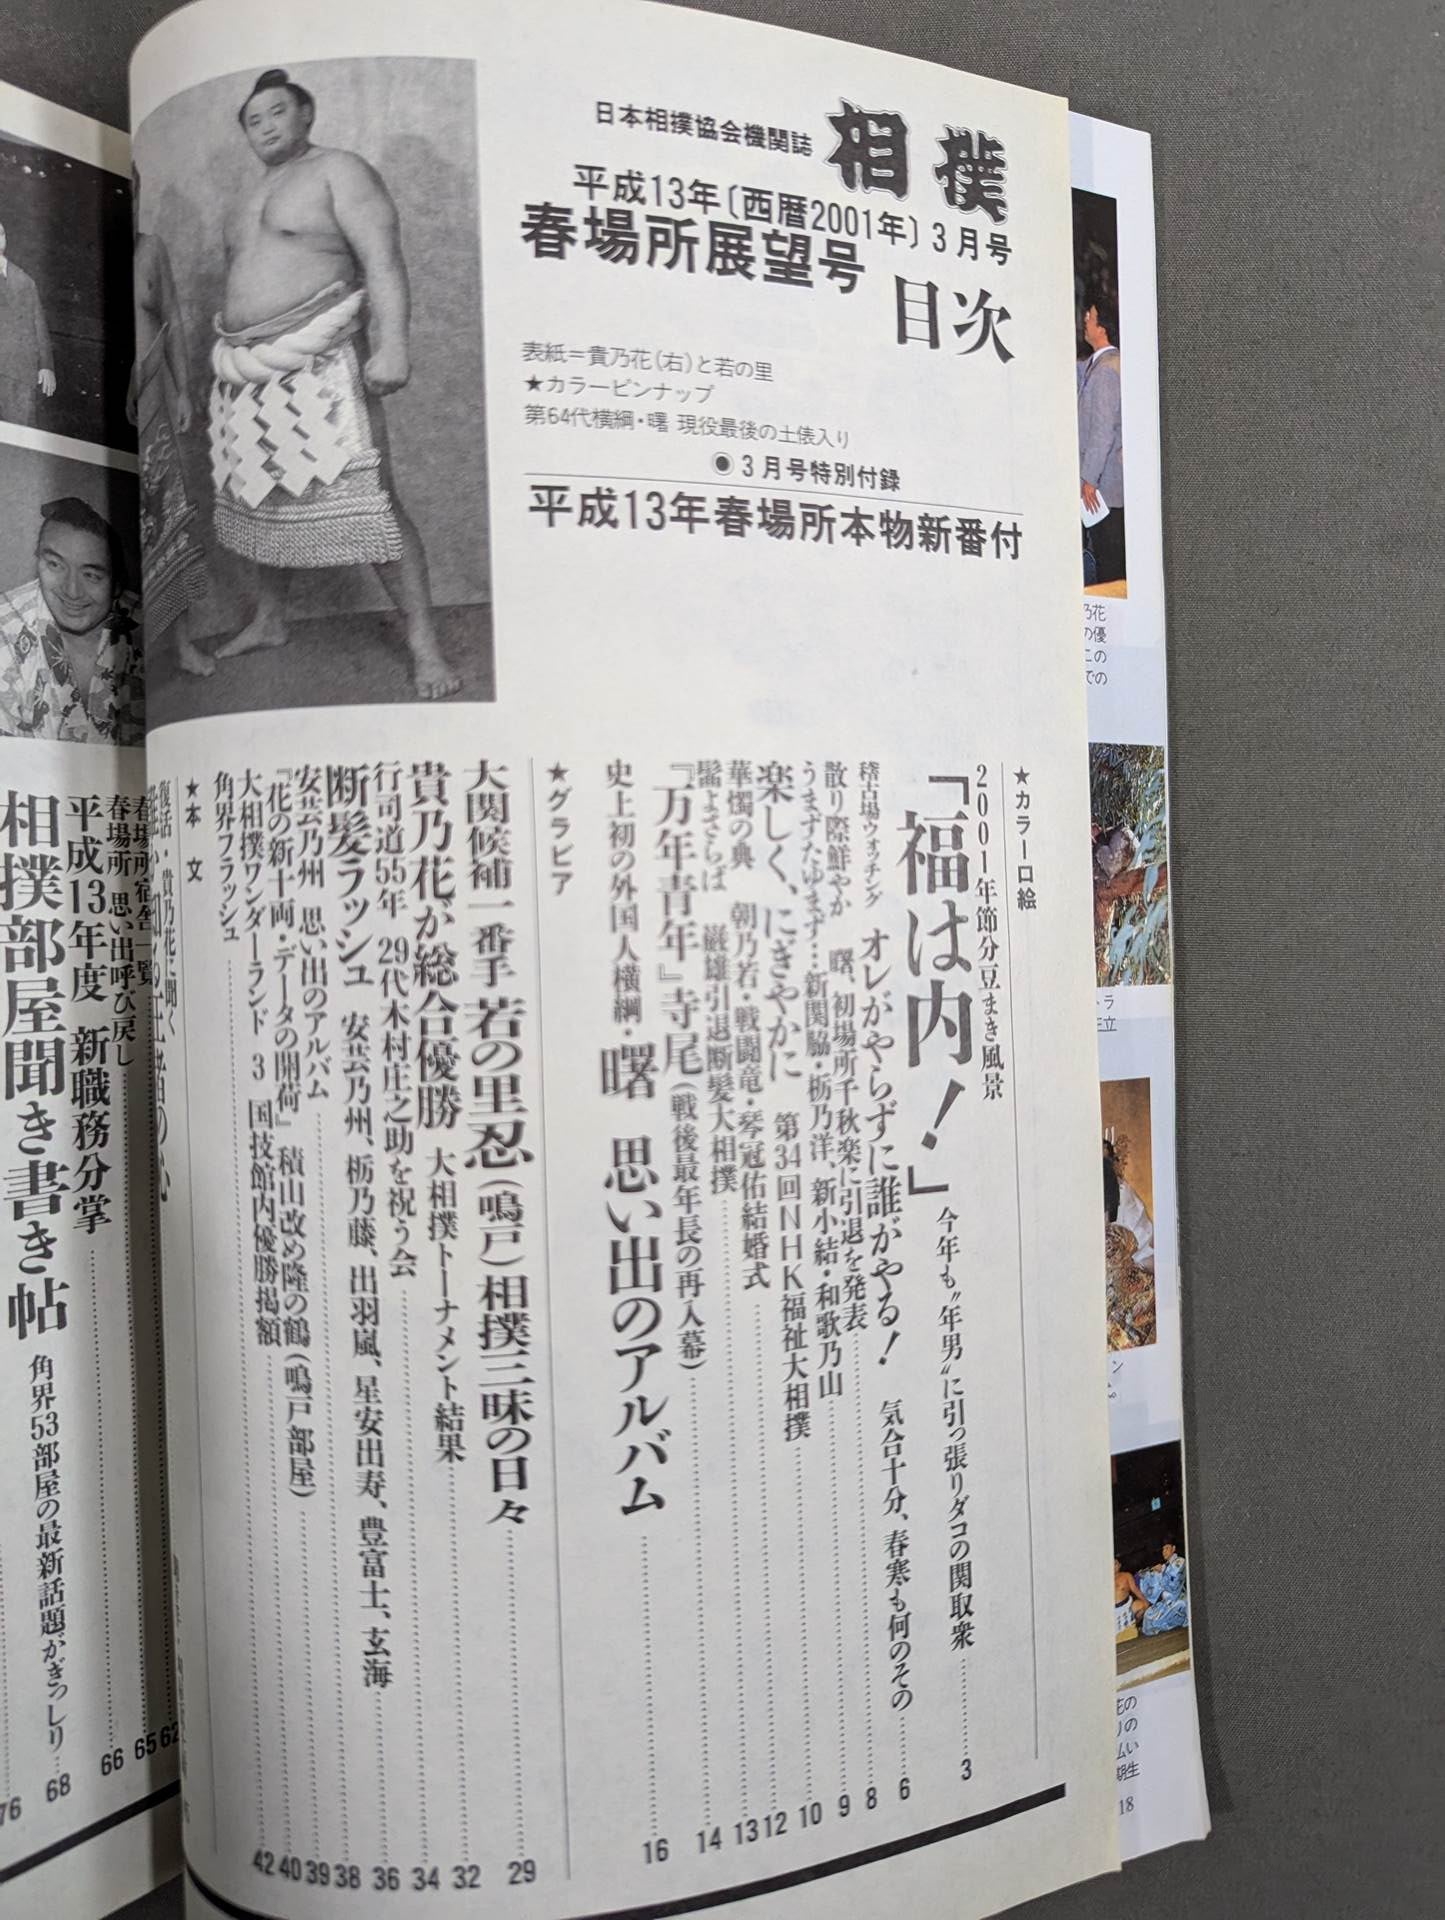 日本相撲協会機関誌 相撲
平成13年〔西暦2001年〕3月号
春場所展望号
目次
表紙=貴乃花(右)と若の里
★カラーピンナップ
第64代横綱・曙 現役最後の土俵入り
◉3月号特別付録
平成13年春場所本物新番付
★カラー口絵
2001年節分豆まき風景
「福は内!」今年も〝年男〟に引っ張りダコの関取衆 3
稽古場ウォッチング オレがやらずに誰がやる! 気合十分、春寒も何のその 6
散り際鮮やか 曙、初場所千秋楽に引退を発表 8
うまずたゆまず…新関脇・栃乃洋、新小結・和歌乃山 9
楽しく、にぎやかに 第34回NHK福祉大相撲 10
華燭の典 朝乃若・戦闘竜・琴冠佑結婚式 12
髷よさらば 巌雄引退断髪大相撲 13
『万年青年』寺尾(戦後最年長の再入幕) 14
史上初の外国人横綱・曙 思い出のアルバム 16
★グラビア
大関候補一番手 若の里忍(鳴戸)相撲三昧の日々 29
貴乃花が総合優勝 大相撲トーナメント結果 32
行司道55年 29代木村庄之助を祝う会 34
断髪ラッシュ 安芸乃州、栃乃藤、出羽嵐、星安出寿、豊富士、玄海 36
安芸乃州 思い出のアルバム 38
『花の新十両・データの開荷』 積山改め隆の鶴(鳴戸部屋) 39
大相撲ワンダーランド 3 国技館内優勝掲額 40
角界フラッシュ 42
★本文
復活・貴乃花に聞く
62
春場所宿舎一覧 65
春場所 思い出呼び戻し
平成13年度 新職務分掌 66
相撲部屋聞き書き帖 角界53部屋の最新話題がぎっしり 68
76
乃花
の優
この
での
ラ
ン
花の
りの
払い
期生
18